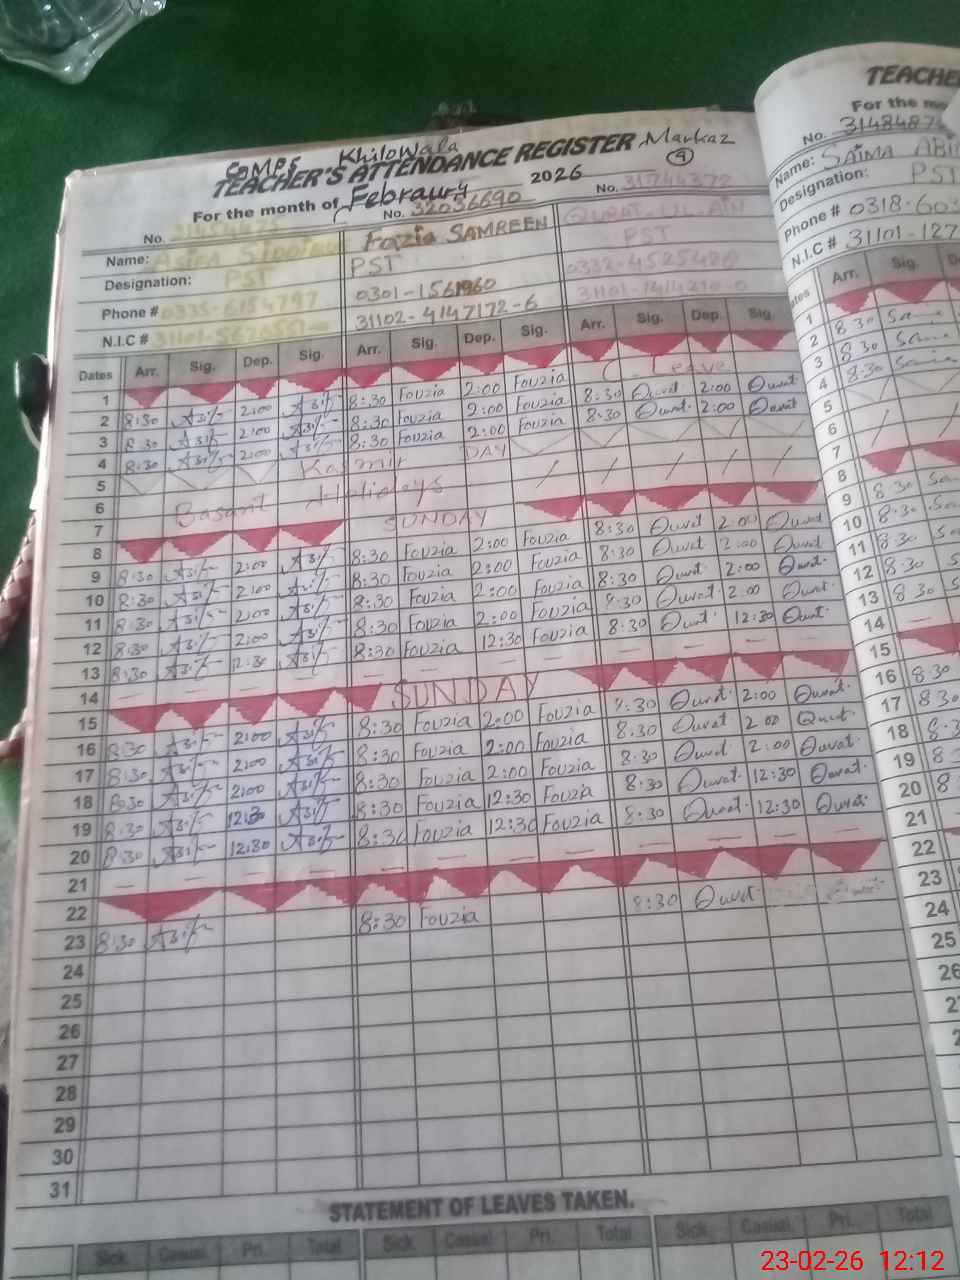 COMPS KhiloWala Markaz
TEACHER'S ATTENDANCE REGISTER (9)
For the month of Febraury 2026
No. 31454475 No. 32036690 No. 31744372
Name: Fazia SAMREEN QURAT-UL-AIN
Designation: PST PST PST
Phone # 0335-6154797 0301-1561960 0332-4525486
N.I.C # 31102-4147172-6
Dates Arr. Sig. Dep. Sig. Arr. Sig. Dep. Sig. Arr. Sig. Dep. Sig.
1
2 8:30 Asif 2:00 Asif 8:30 Fouzia 2:00 Fouzia Leave
3 8:30 Asif 2:00 Asif 8:30 Fouzia 2:00 Fouzia 8:30 Qurat 2:00 Qurat
4 8:30 Asif 2:00 Asif 8:30 Fouzia 2:00 Fouzia 8:30 Qurat 2:00 Qurat
5 Kasmir DAY
6 Basant Holidays
7
8 SUNDAY
9 8:30 Asif 2:00 Asif 8:30 Fouzia 2:00 Fouzia 8:30 Qurat 2:00 Qurat
10 8:30 Asif 2:00 Asif 8:30 Fouzia 2:00 Fouzia 8:30 Qurat 2:00 Qurat
11 8:30 Asif 2:00 Asif 8:30 Fouzia 2:00 Fouzia 8:30 Qurat 2:00 Qurat
12 8:30 Asif 2:00 Asif 8:30 Fouzia 2:00 Fouzia 8:30 Qurat 2:00 Qurat
13 8:30 Asif 12:30 Asif 8:30 Fouzia 12:30 Fouzia 8:30 Qurat 12:30 Qurat
14 — — — — — — — — — — — —
15 SUNDAY
16 8:30 Asif 2:00 Asif 8:30 Fouzia 2:00 Fouzia 8:30 Qurat 2:00 Qurat
17 8:30 Asif 2:00 Asif 8:30 Fouzia 2:00 Fouzia 8:30 Qurat 2:00 Qurat
18 8:30 Asif 2:00 Asif 8:30 Fouzia 2:00 Fouzia 8:30 Qurat 2:00 Qurat
19 8:30 Asif 12:30 Asif 8:30 Fouzia 12:30 Fouzia 8:30 Qurat 12:30 Qurat
20 8:30 Asif 12:30 Asif 8:30 Fouzia 12:30 Fouzia 8:30 Qurat 12:30 Qurat
21 — — — — — — — — — — — —
22
23 8:30 Asif 8:30 Fouzia 8:30 Qurat
24
25
26
27
28
29
30
31
STATEMENT OF LEAVES TAKEN.
Sick Casual Pri. Total Sick Casual Pri. Total Sick Casual Pri. Total
TEACHE
For the mo
No. 3148487
Name: SAIMA ABI
Designation: PST
Phone # 0318-603
N.I.C # 31101-127
Arr. Sig.
1
2 8 30
3 8 30
4 8:30
5
6
7
8
9 8 30
10 8:30
11 8:30
12 8:30
13 8 30
14 —
15
16 8:30
17 8 30
18
19
20
21
22
23
24
25
26
23-02-26 12:12